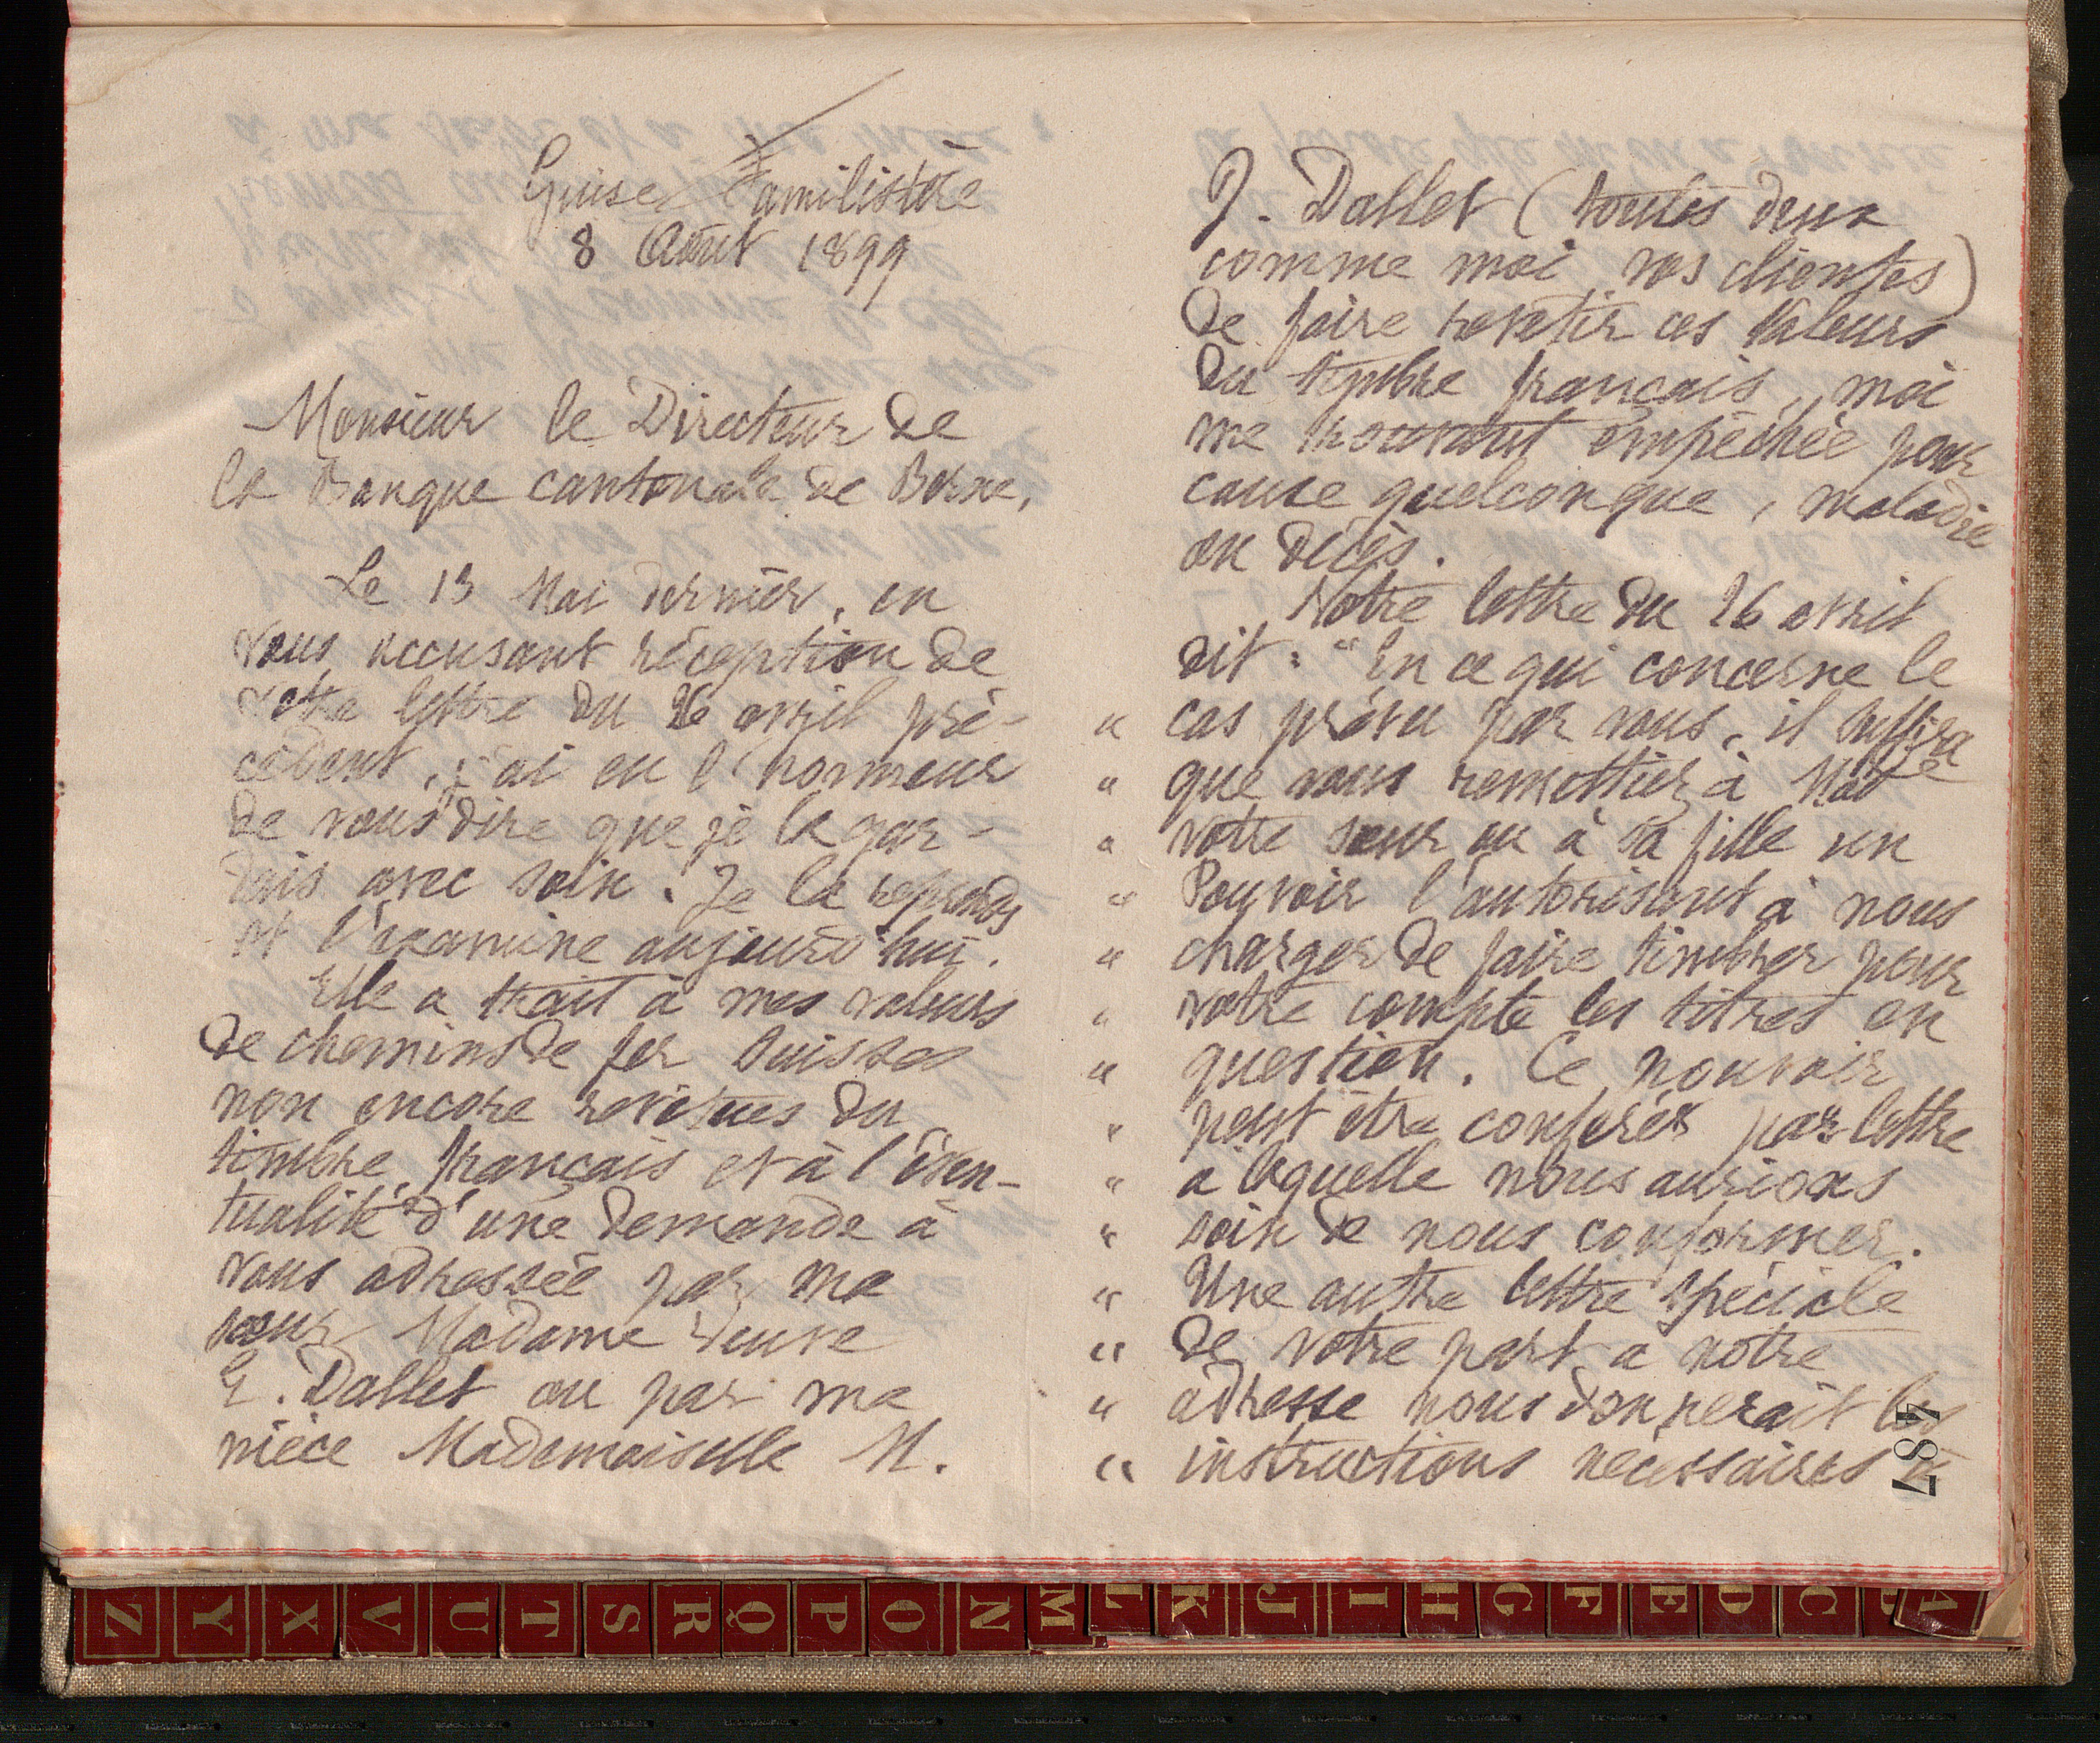 Guise Familistère
8 Août 1899
Monsieur le Directeur de
la Banque cantonale de Berne,
Le 13 Mai dernier, en
vous accusant réception de
votre lettre du 26 avril pré-
cédent, j'ai eu l'honneur
de vous dire que je la gar-
dais avec soin. Je la reprends
et l'examine aujourd'hui.
Elle a trait à mes valeurs
de chemins de fer Suisses
non encore revêtues du
timbre français et à l'éven-
tualité d'une demande à
vous adressée par ma
sœur Madame veuve
E. Dallet ou par ma
nièce Mademoiselle M.
J. Dallet (toutes deux
comme moi vos clientes)
de faire revêtir ces valeurs
du timbre français, moi
me trouvant empêchée pour
cause quelconque, maladie
ou décès.
Votre lettre du 26 avril
dit : "En ce qui concerne le
" cas prévu par vous, il suffira
" que vous remettiez à Made
" votre sœur ou à sa fille un
" Pouvoir l'autorisant à nous
" charger de faire timbrer pour
" votre compte les titres en
" question. Ce pouvoir
" peut être conférer par lettre
" a laquelle nous aurions
" soin de nous conformer.
" Une autre lettre spéciale
" de votre part a notre
" adresse nous donnerait les
" instructions nécessaires à
487
Z Y X V U T S R Q P O N M L K J I H G F E D C B A